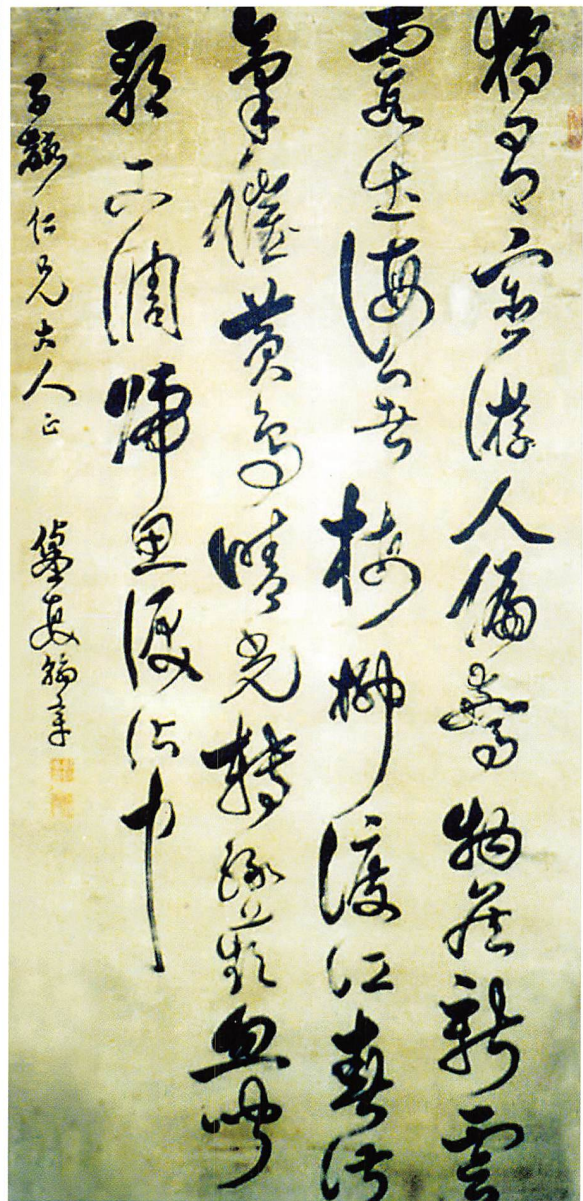 獨有宦游人偏驚物候新雲
霞出海曙梅柳渡江春淑
氣催黄鳥晴光轉綠蘋忽聞
歌古調歸思復沾巾
子仁兄大人正